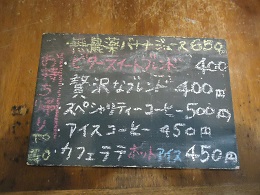 無農薬バナナジュース650
ビタースイートブレンド 400
贅沢なブレンド 400円
スペシャリティーコーヒー 500円
アイスコーヒー 450円
カフェラテ ホット アイス 450円
お持ち帰り